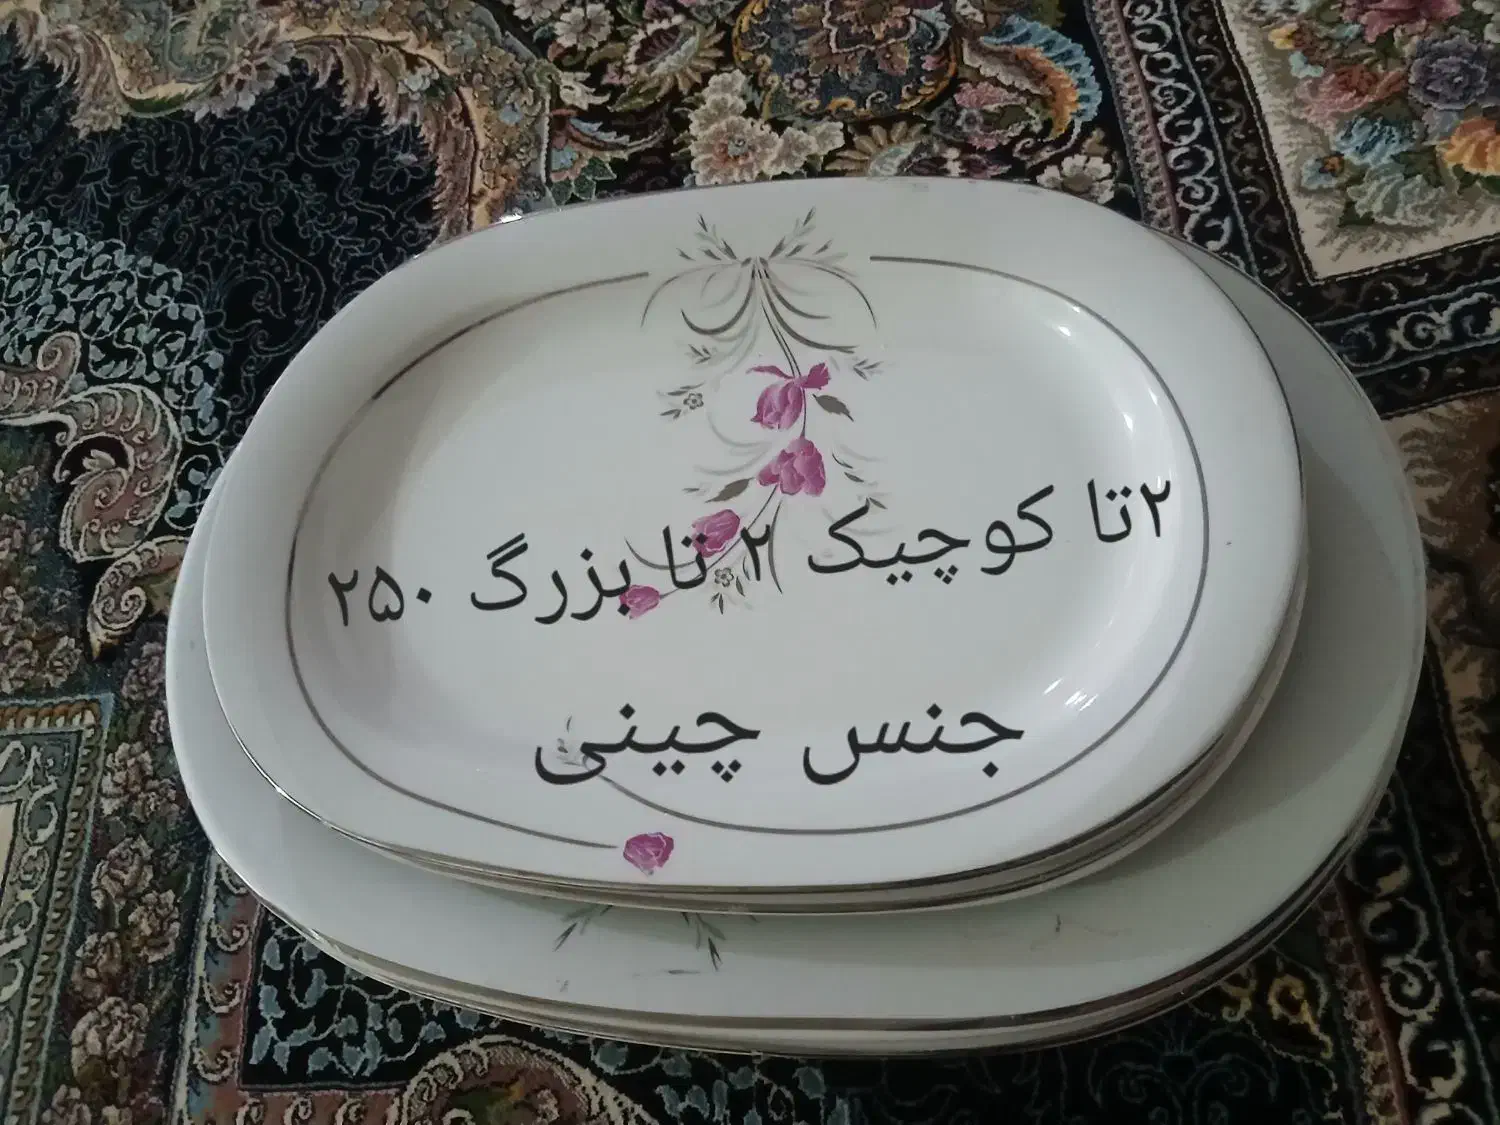 ۲تا کوچیک ۲ تا بزرگ ۲۵۰
جنس چینی